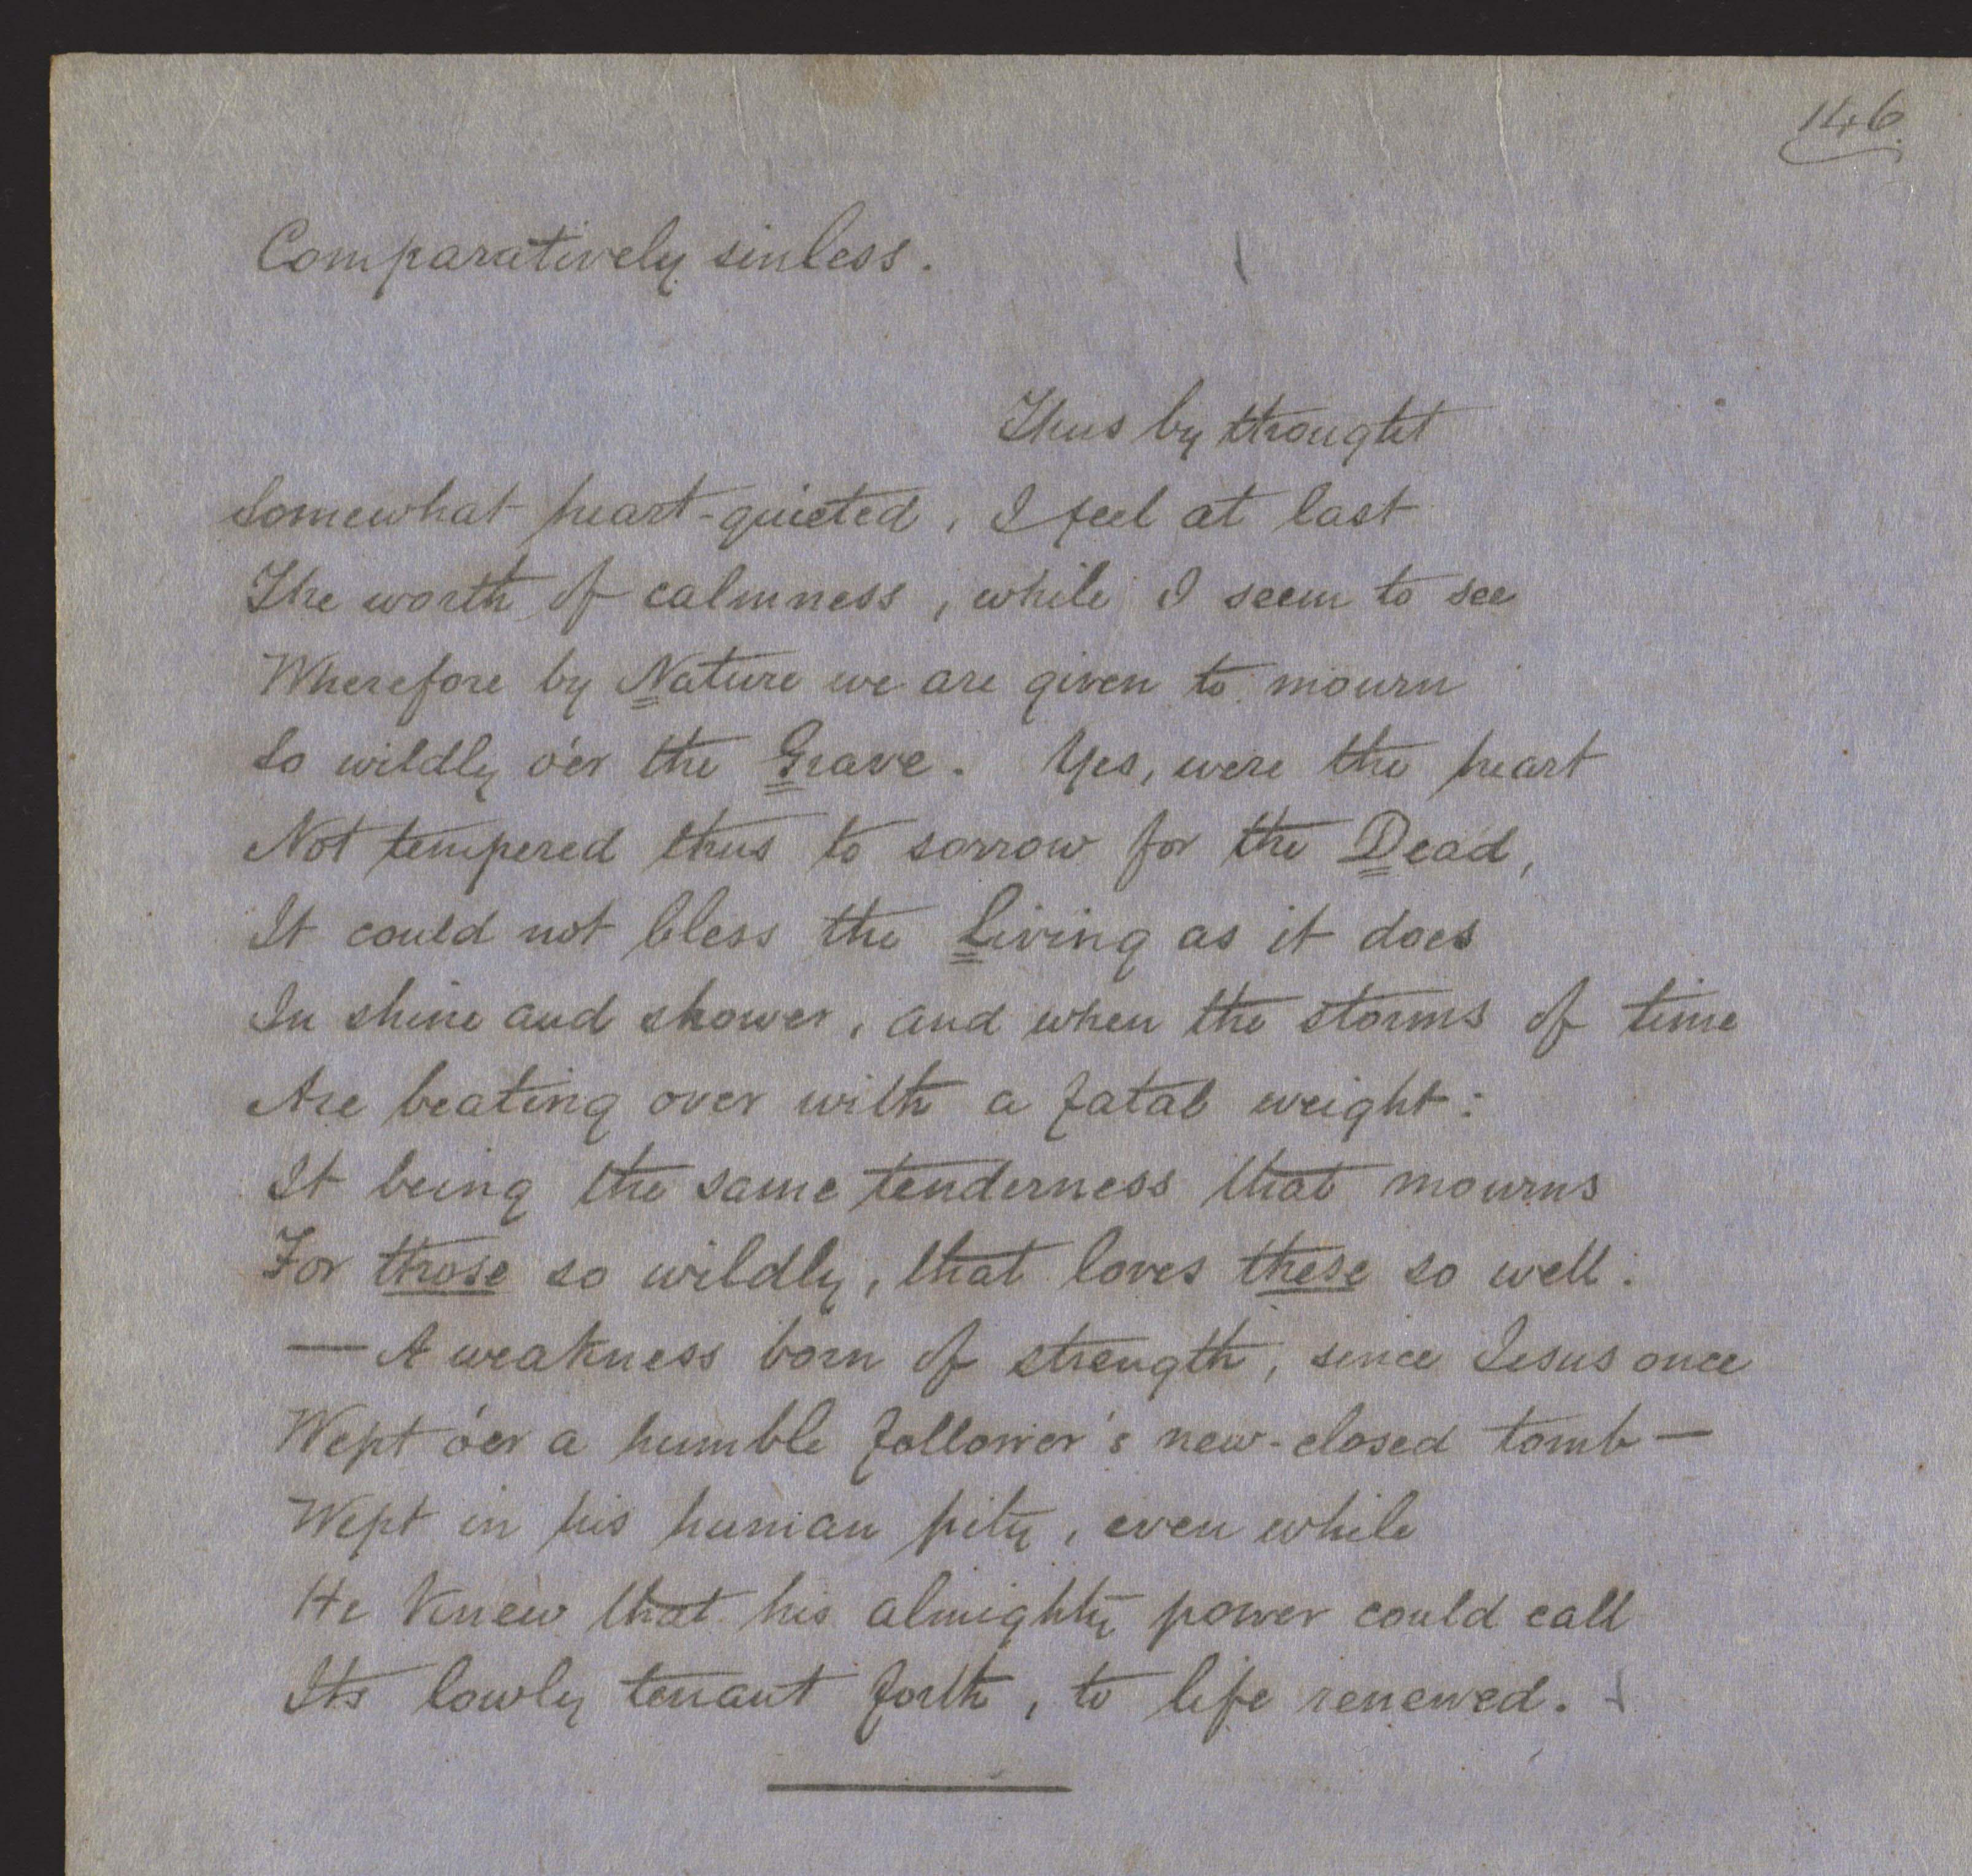 146.
Comparatively sinless.
Thus by thought
Somewhat heart-quieted, I feel at last
The worth of calmness, while I seem to see
Wherefore by Nature we are given to mourn
So wildly o'er the Grave. Yes, were the heart
Not tempered thus to sorrow for the Dead,
It could not bless the Living as it does
In shine and shower, and when the storms of time
Are beating over with a fatal weight:
It being the same tenderness that mourns
For those so wildly, that loves these so well.
— A weakness born of strength, since Jesus once
Wept o'er a humble follower's new-closed tomb —
Wept in his human pity, even while
He knew that his almighty power could call
Its lowly tenant forth, to life renewed.